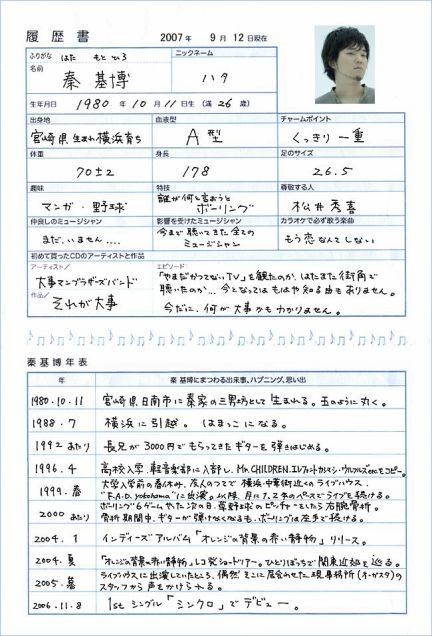 履歴書 2007年 9月 12日現在
ふりがな はた もとひろ
名前 秦 基博
ニックネーム
ハタ
生年月日 1980年 10月 11日生 (満 26歳)
出身地 血液型 チャームポイント
宮崎県生まれ横浜育ち A型 くっきり一重
体重 身長 足のサイズ
70±2 178 26.5
趣味 特技 尊敬する人
マンガ・野球 誰が何と言おうとボーリング 松井秀喜
仲良しのミュージシャン 影響を受けたミュージシャン カラオケで必ず歌う楽曲
まだ、いません.... 今まで聴いてきた全てのミュージシャン もう恋なんてしない
初めて買ったCDのアーティストと作品
アーティスト/ エピソード
大事マンブラザーズバンド 「やまだかつてないTV」を観たのか、はたまた街角で
作品/ 聴いたのか...今となってはもはや知る由もありません。
それが大事 今だに、何が大事かもわかりません。
秦基博年表
年 秦 基博にまつわる出来事、ハプニング、思い出
1980.10.11 宮崎県日南市に秦家の三男坊として生まれる。玉のように丸く。
1988.7 横浜に引越。はまっこになる。
1992あたり 長兄が3000円でもらってきたギターを弾きはじめる。
1996.4 高校入学、軽音楽部に入部し、Mr.CHILDREN.エレファントカシマシ.ウルフルズetcをコピー。
1999.春 大学入学前の春休み、友人のつてで横浜・中華街近くのライブハウス
"F.A.D. yokohama"に出演。以降、月に1、2本のペースでライブを続ける。
2000あたり ボーリング6ゲームやった次の日、草野球のピッチャーをしたら右腕骨折。
骨折期間中、ギターが弾けなくなるも、ボーリングは左手で続ける。
2004.1 インディーズアルバム「オレンジの背景の赤い静物」リリース。
2004.夏 「オレンジの背景の赤い静物」レコ発ショートツアー。ひとりぼっちで関東近郊を巡る。
2005.暮 ライブハウスに出演していたところ、偶然そこに居合わせた現事務所(オーガスタ)の
スタッフから声をかけられる。
2006.11.8 1stシングル「シンクロ」でデビュー。